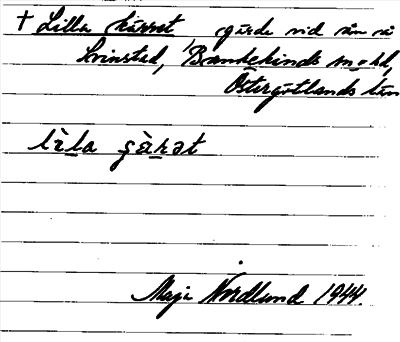 † Lilla kärret gärde vid sån så
Svinstad, Bankekinds sn o hd,
Östergötlands län
lìla çæ̀rət
Maja Nordlund 1944.